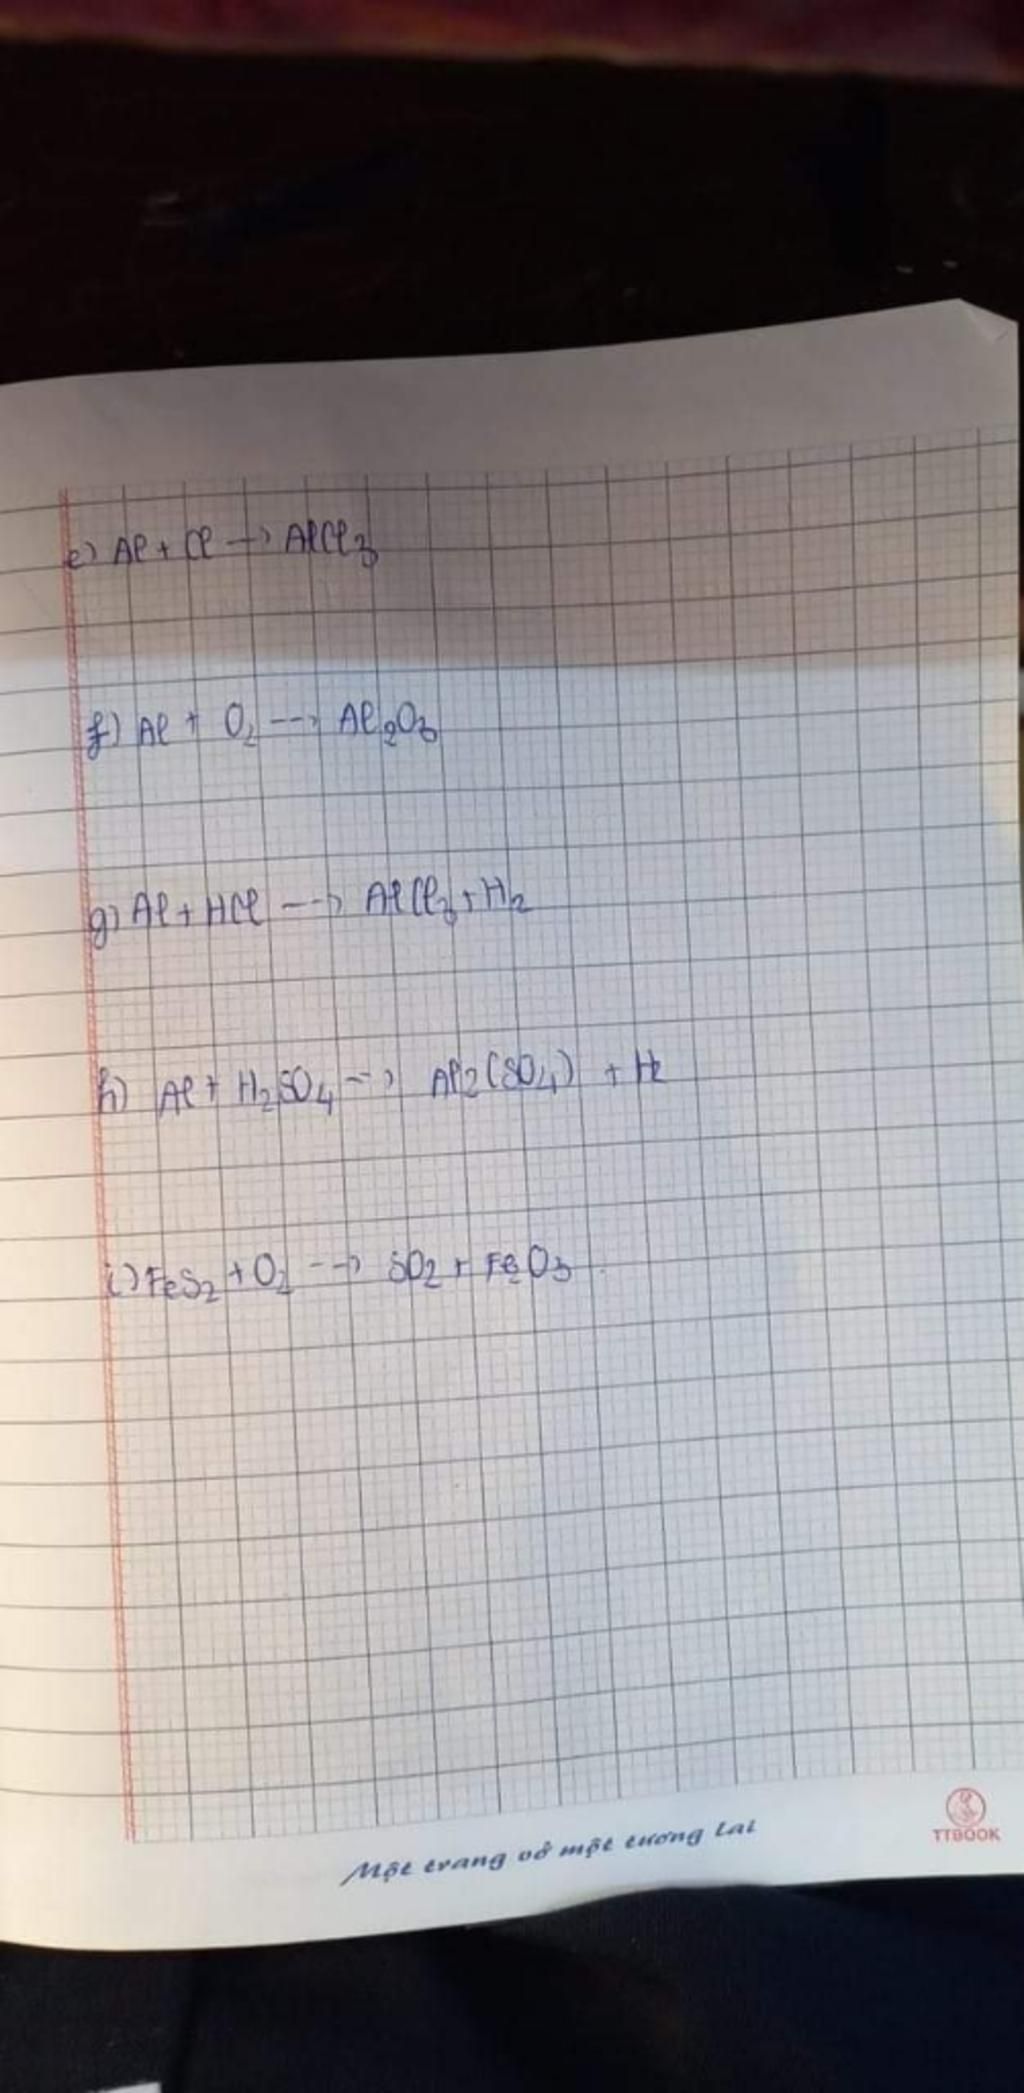 e) Al + Cl → AlCl3
f) Al + O2 --→ Al2O3
g) Al + HCl --→ AlCl3 + H2
h) Al + H2SO4 --→ Al2(SO4) + H2
i) FeS2 + O2 --→ SO2 + Fe2O3
Một trang vở một tương lai
TTBOOK